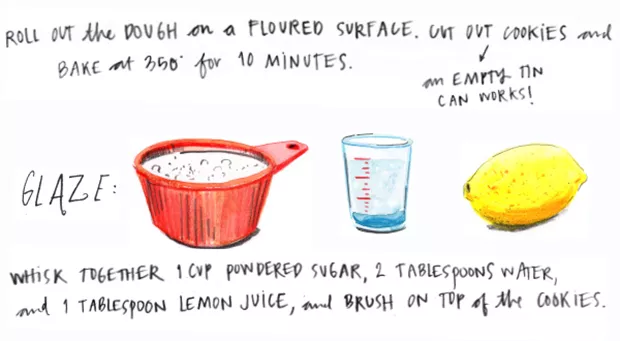 ROLL OUT the DOUGH on a FLOURED SURFACE. CUT OUT COOKIES and
BAKE at 350° for 10 MINUTES.
an EMPTY TIN
CAN WORKS!
GLAZE:
WHISK TOGETHER 1 CUP POWDERED SUGAR, 2 TABLESPOONS WATER,
and 1 TABLESPOON LEMON JUICE, and BRUSH ON TOP of the COOKIES.